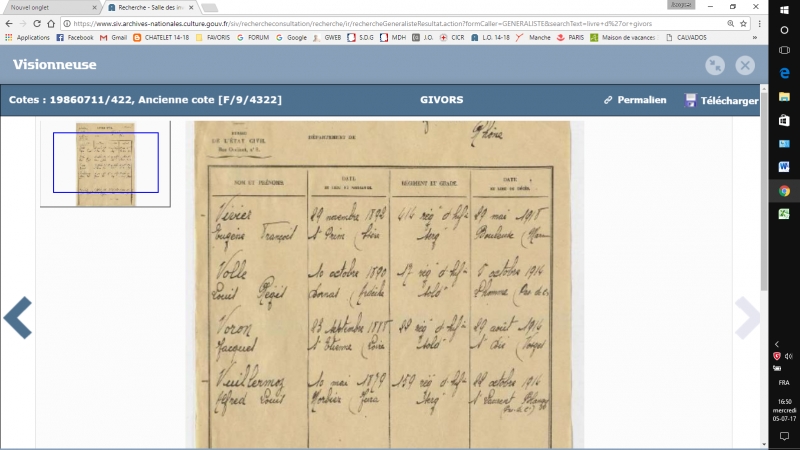 Nouvel onglet
Recherche - Salle des in
https://www.siv.archives-nationales.culture.gouv.fr/siv/rechercheconsultation/recherche/ir/rechercheGeneralisteResultat.action?formCaller=GENERALISTE&searchText=livre+d%27or+givors
Applications Facebook Gmail CHATELET 14-18 FAVORIS FORUM Google GWEB S.O.G MDH J.O. CICR L.O. 14-18 Manche PARIS Maison de vacances CALVADOS
Visionneuse
Cotes : 19860711/422, Ancienne cote [F/9/4322] GIVORS Permalien Télécharger
Rhône
DE L'ÉTAT CIVIL DÉPARTEMENT DE
NOM ET PRÉNOMS DATE RÉGIMENT ET GRADE DATE
29 novembre 1892 416 rég d'inf 29 mai 1918
Eugène François St Prim (Isère Serg
Volle 10 octobre 1890 17 rég d'inf octobre 1914
Louis Régis (Ardèche Sold (Pas de C
Voron 23 septembre 29 août 1914
Jacques St Etienne (Loire Sold St Dié (Vosges
Vuillermoz 10 mai 1879 159 rég d'inf octobre 1914
Alfred Louis Morbier (Jura Serg St Laurent Blangy
(Pas de C)
FRA
16:50
mercredi
05-07-17